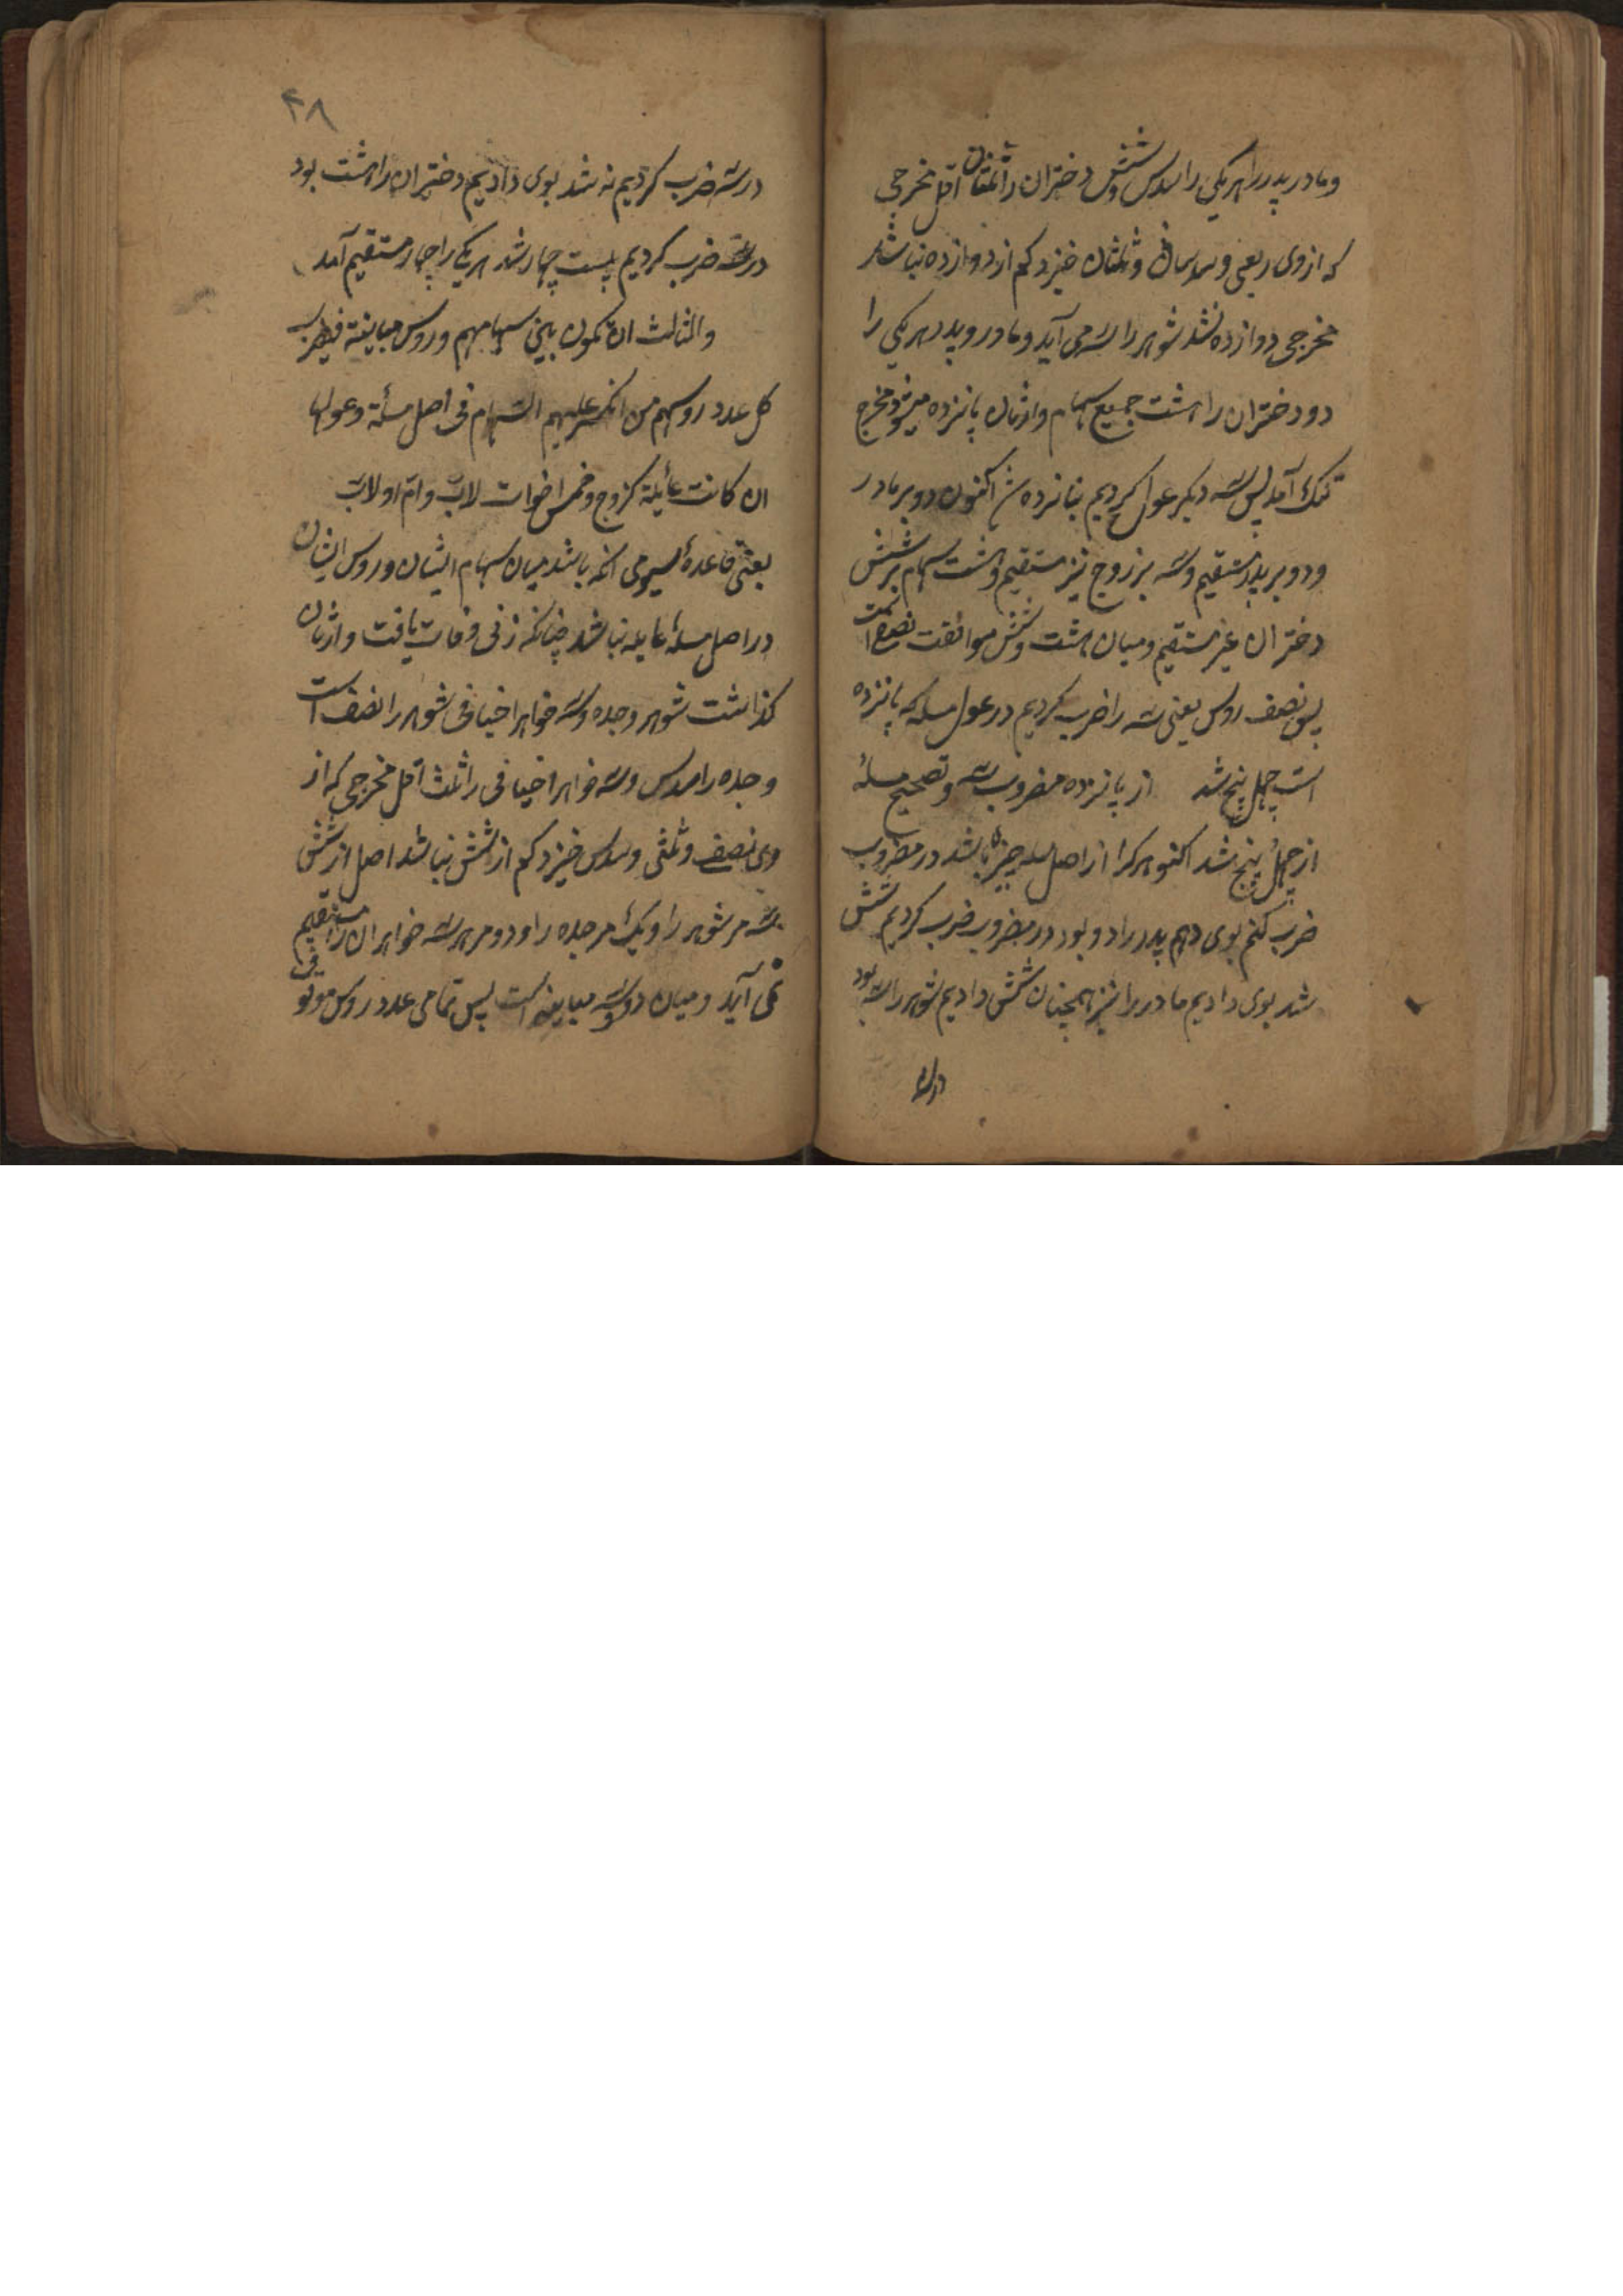 و مادر پدر را هر یکی را سدس و شش دختران را ثلثان اقل مخرجی
که ازوی ربعی و سدسان و ثلثان خیزد کم از دوازده نباشد
مخرجی دوازده شد شوهر را سه می آید و مادر و پدر هر یکی را
دو دختران را هشت جمیع سهام وارثان پانزده میشود مخرج
تنک آمد پس سه دیکر عول کردیم بپانزده شد اکنون دو بر مادر
و دو بر پدر مستقیم و سه بر زوج نیز مستقیم و هشت سهام بر شش
دختران غیر مستقیم و میان هشت و شش موافقت نصف است
پس نصف روس یعنی سه را ضرب کردیم در عول مسله که پانزده
است چهل پنج شد از پانزده مضروب سه و تصحیح مسلهٔ
از چهل پنج شد اکنو هرکرا از اصل مسله چیزی باشد در مضروب
ضرب کنم بوی دهم پدر را دو بود در مضروب ضرب کردیم شش
شد بوی دادیم مادر را نیز همچنان شش دادیم شوهر را سه بود
درسه
۴۸
در سه ضرب کردیم نه شد بوی دادیم دختران را هشت بود
در سه ضرب کردیم بیست چهار شد هر یکی را چهار مستقیم آمد
والثالث ان تکون بین سهامهم و روس مباینة فیضرب
کل عدد روسهم من انکسر علیهم السهام فی اصل مسألة وعولها
ان کانت عائلة کزوج و خمس اخوات لاب وام او لاب
یعنی قاعدهٔ سیومی انکه باشد میان سهام ایشان و روس ایشان
در اصل مسلهٔ عایله نباشد چنانکه زنی وفات یافت و وارثان
کذاشت شوهر و جده و سه خواهر اخیافی شوهر را نصف است
و جده را سدس و سه خواهر اخیافی را ثلث اقل مخرجی که از
وی نصف و ثلثی و سدس خیزد کم از شش نباشد اصل از شش
سه مر شوهر را و یک مر جده را و دو مر هر سه خواهران را مستقیم
نمی آید و میان دو و سه مباینه است پس تمامی عدد روس موقوفی